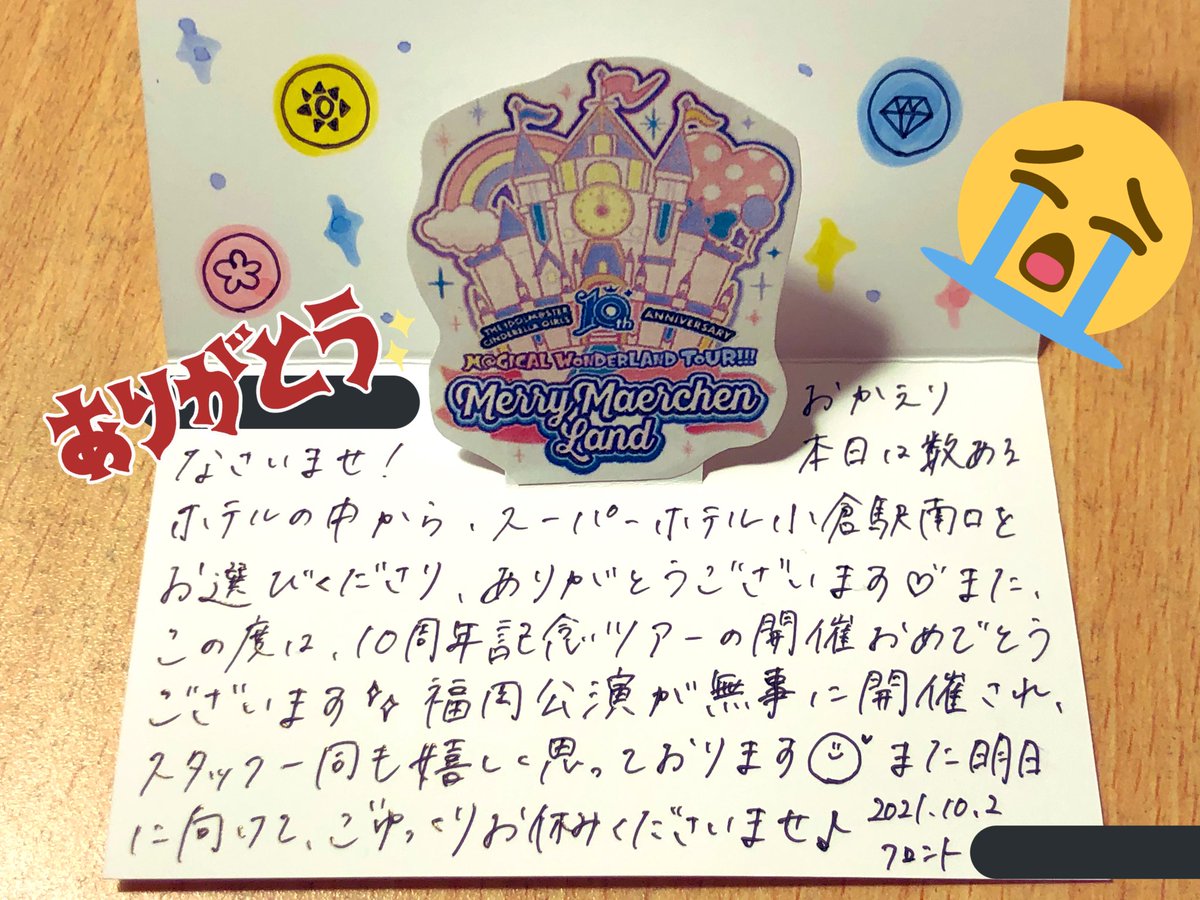 THE IDOLM@STER
CINDERELLA GIRLS
10th
ANNIVERSARY
M@GICAL WONDERLAND TOUR!!!
Merry Maerchen
Land
ありがとう
おかえり
なさいませ!
本日は数ある
ホテルの中から、スーパーホテル小倉駅南口を
お選びくださり、ありがとうございます♡また、
この度は、10周年記念ツアーの開催おめでとう
ございます✨福岡公演が無事に開催され、
スタッフ一同も嬉しく思っております☺また明日
に向けて、ごゆっくりお休みくださいませ♪
2021.10.2
フロント